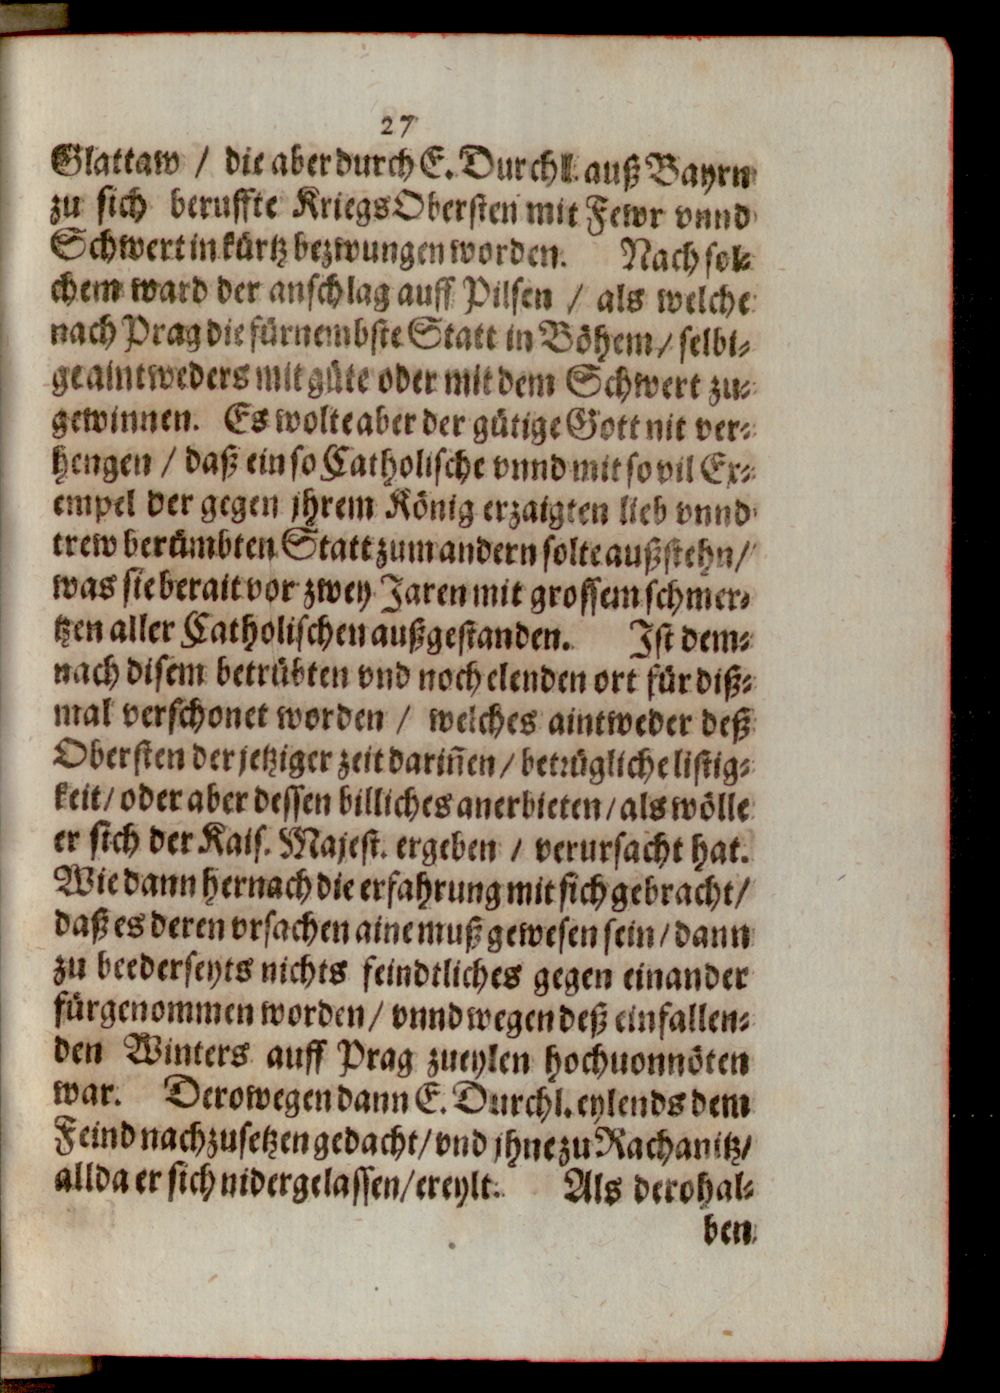 27
Glattaw / die aber durch E. Durchl. auß Bayrn
zu sich beruffte KriegsObersten mit Fewr vnnd
Schwert in kürtz bezwungen worden. Nach sol-
chem ward der anschlag auff Pilsen / als welche
nach Prag die fürnembste Statt in Böhem / selbi-
ge aintweders mit güte oder mit dem Schwert zu-
gewinnen. Es wolte aber der gütige Gott nit ver-
hengen / daß ein so Catholische vnnd mit so vil Ex-
empel der gegen jhrem König erzaigten lieb vnnd
trew berümbten Statt zum andern solte außstehn /
was sie berait vor zwey Jaren mit grossem schmer-
tzen aller Catholischen außgestanden. Ist dem-
nach disem betrübten vnd noch elenden ort für diß-
mal verschonet worden / welches aintweder deß
Obersten der jetziger zeit dariñen / betrügliche listig-
keit / oder aber dessen billiches anerbieten / als wölle
er sich der Kais. Majest. ergeben / verursacht hat.
Wie dann hernach die erfahrung mit sich gebracht /
daß es deren vrsachen aine muß gewesen sein / dann
zu beederseyts nichts feindtliches gegen einander
fürgenommen worden / vnnd wegen deß einfallen-
den Winters auff Prag zueylen hochuonnöten
war. Derowegen dann E. Durchl. eylends dem
Feind nachzusetzen gedacht / vnd jhne zu Rachanitz /
allda er sich nidergelassen / ereylt. Als derohal-
ben